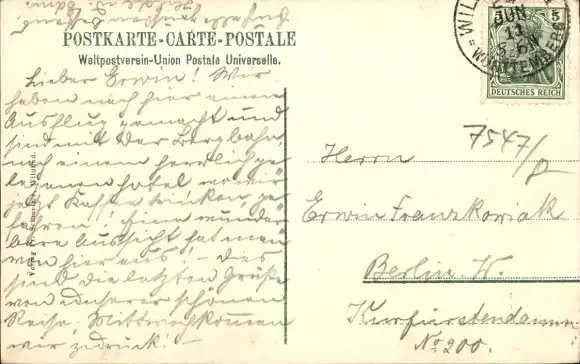 POSTKARTE-CARTE-POSTALE
Weltpostverein-Union Postale Universelle.
Lieber Erwin! Wir
haben nach hier einen
Ausflug gemacht und
sind mit der Bergbahn
nach einem herrlich ge
legenen Hotel wo wir
jetzt Kaffee trinken, ge
fahren! Eine wunder
bare Aussicht hat man
von hier aus! - Dies
sind die letzten Grüße
von unserer schönen
Reise, Mittwoch kommen
wir zurück. -
WIL
JUN
13
5-6N
WÜRTTEMBERG
5
DEUTSCHES REICH
7547/
Herrn
Erwin Franzkowiak
Berlin W.
Kurfürstendamm
No. 200.